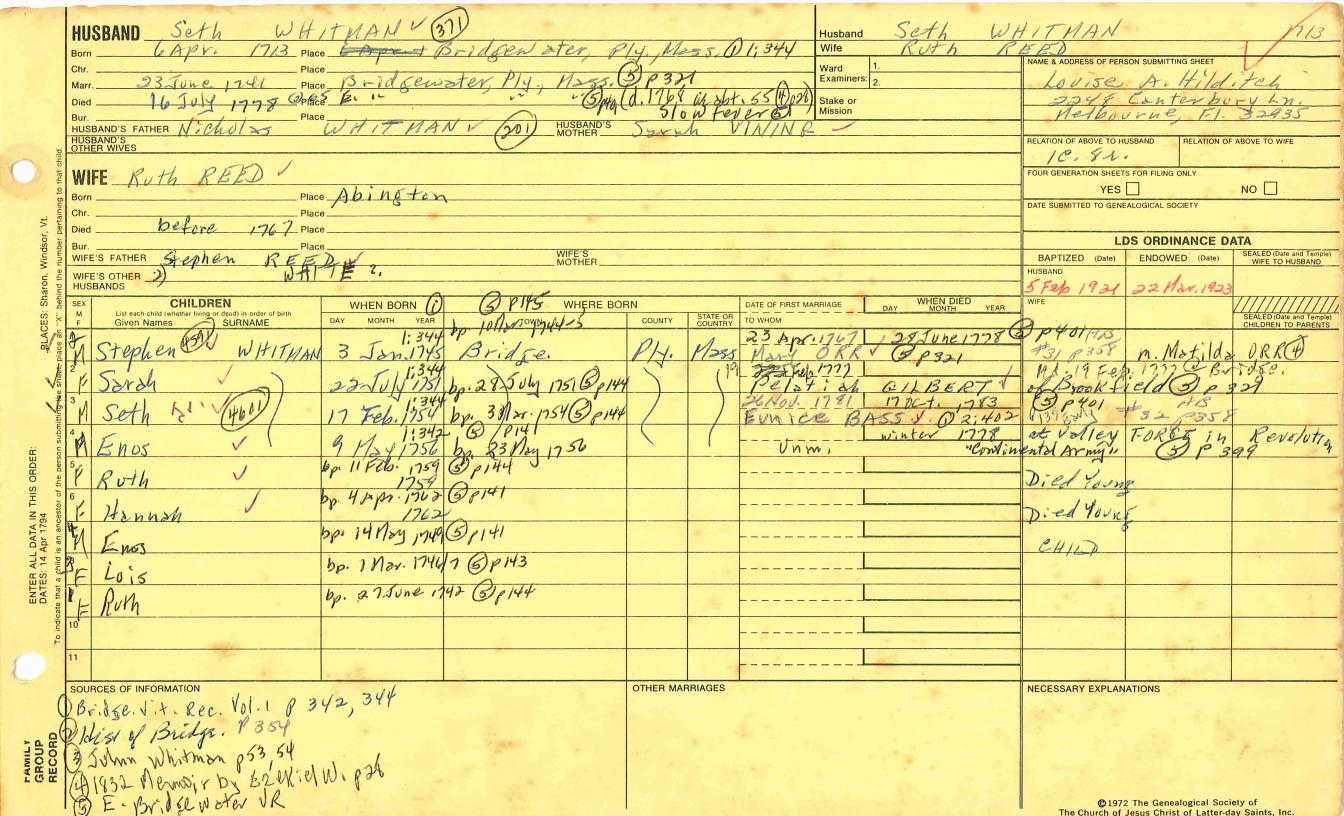 HUSBAND Seth WHITMAN ✓ (371)
Born 6 Apr. 1713 Place Bridgewater, Ply, Mass, ① 1:344
Chr. Place
Marr. 23 June 1741 Place Bridgewater, Ply, Mass. ⑤ p321
Died 16 July 1778 Place E. " " " ⑤ (d. 1768 as abt. 55 ④ p28)
Bur. Place slow fever
HUSBAND'S FATHER Nicholas WHITMAN ✓ (201) HUSBAND'S MOTHER Sarah VINING
HUSBAND'S OTHER WIVES
WIFE Ruth REED ✓
Born Place Abington
Chr. Place
Died before 1767 Place
Bur. Place
WIFE'S FATHER Stephen REED ✓ WIFE'S MOTHER
WIFE'S OTHER HUSBANDS WHITE ?.
Husband Seth WHITMAN 1713
Wife Ruth REED
Ward Examiners: 1. 2.
Stake or Mission
NAME & ADDRESS OF PERSON SUBMITTING SHEET
Louise A. Hilditch
2248 Canterbury Ln.
Melbourne, Fl. 32935
RELATION OF ABOVE TO HUSBAND RELATION OF ABOVE TO WIFE
1C. 8r.
FOUR GENERATION SHEETS FOR FILING ONLY
YES NO
DATE SUBMITTED TO GENEALOGICAL SOCIETY
LDS ORDINANCE DATA
BAPTIZED (Date) ENDOWED (Date) SEALED (Date and Temple) WIFE TO HUSBAND
HUSBAND
5 Feb 1921 22 Mar. 1923
WIFE
SEALED (Date and Temple) CHILDREN TO PARENTS
SEX M F CHILDREN WHEN BORN ① ⑤ p145 WHERE BORN DATE OF FIRST MARRIAGE WHEN DIED
List each child (whether living or dead) in order of birth
Given Names SURNAME DAY MONTH YEAR TOWN COUNTY STATE OR COUNTRY TO WHOM DAY MONTH YEAR
1:344 bp. 10 Mar 1744-5 23 Apr. 1767 28 June 1778 ② p401
M Stephen ✓ WHITMAN 3 Jan. 1745 Bridge. Ply. Mass Mary ORR ✓ ⑤ p321 #31 p358 m. Matilda ORR ④
2 1:344 Feb 1777 Md. 19 Feb. 1777 Bridge.
F Sarah ✓ 22 July 1751 bp. 28 July 1751 ⑤ p144 Pelatiah GILBERT ✓ of Brookfield ⑤ p329
3 1:344 26 Nov. 1781 17 Oct. 1783 ⑤ p401
M Seth (4601) 17 Feb. 1754 bp. 3 Mar. 1754 ⑤ p144 Eunice BASS ✓ ① 2:402 #32 p358
4 1:342 ⑤ p141 winter 1778 at Valley FORGE in Revolution
M Enos ✓ 9 May 1756 bp. 23 May 1756 Unm. "Continental Army" ⑤ p399
5 bp. 11 Feb. 1759 ⑤ p144
F Ruth ✓ 1759 Died Young
6 bp. 4 Apr. 1762 ⑤ p141
F Hannah ✓ 1762 Died Young
M Enos bp. 14 May 1749 ⑤ p141 CHILD
F Lois bp. 1 Mar. 1746/7 ⑤ p143
F Ruth bp. 27 June 1742 ⑤ p144
10
11
SOURCES OF INFORMATION OTHER MARRIAGES NECESSARY EXPLANATIONS
① Bridge. Vit. Rec. Vol. 1 p 342, 344
② Hist of Bridge. P354
③ Whitman p53, 54
④ 1832 Memoir by Ezekiel W. p28
⑤ E. Bridgewater VR
©1972 The Genealogical Society of
The Church of Jesus Christ of Latter-day Saints, Inc.
FAMILY GROUP RECORD
ENTER ALL DATA IN THIS ORDER:
DATES: 14 Apr 1794
PLACES: Sharon, Windsor, Vt.
To indicate that a child is an ancestor of the person submitting the sheet, place an "X" behind the number pertaining to that child.